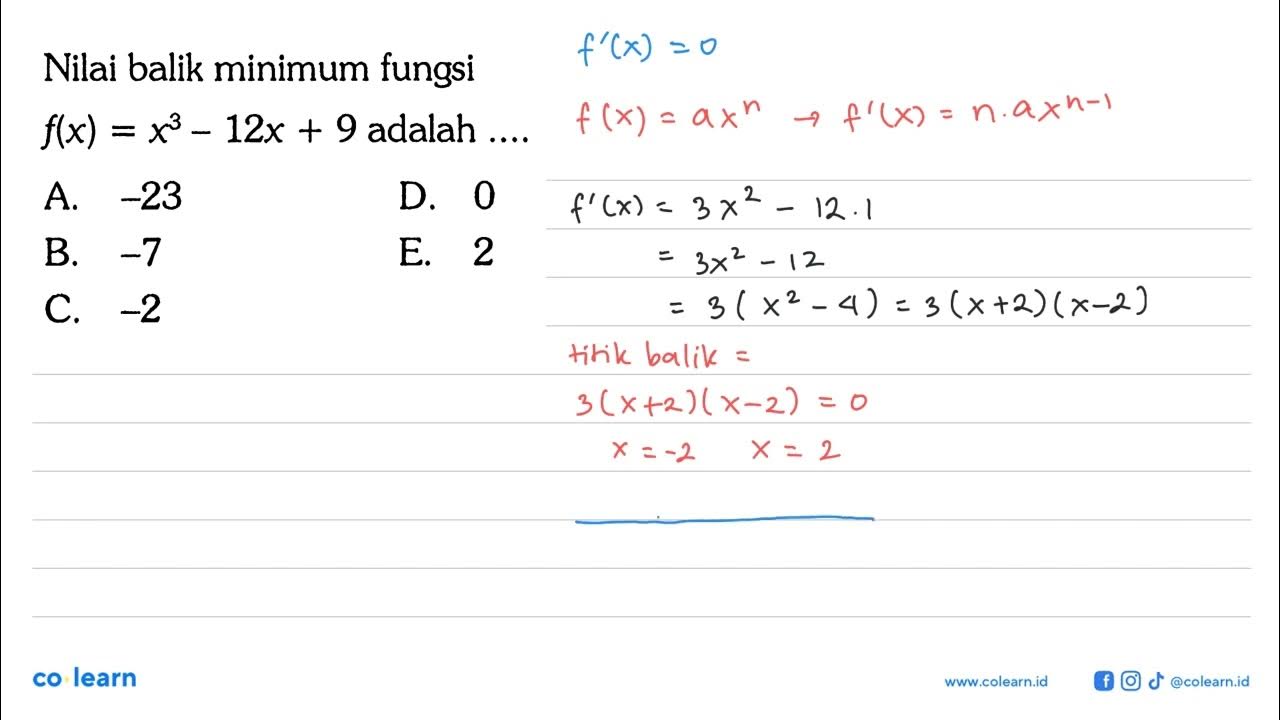 Nilai balik minimum fungsi
f(x) = x³ – 12x + 9 adalah ....
A. –23
B. –7
C. –2
D. 0
E. 2
f'(x) = 0
f(x) = ax^n → f'(x) = n.ax^(n-1)
f'(x) = 3x² - 12.1
= 3x² - 12
= 3(x² - 4) = 3(x+2)(x-2)
titik balik =
3(x+2)(x-2) = 0
x = -2 x = 2
co·learn
www.colearn.id @colearn.id